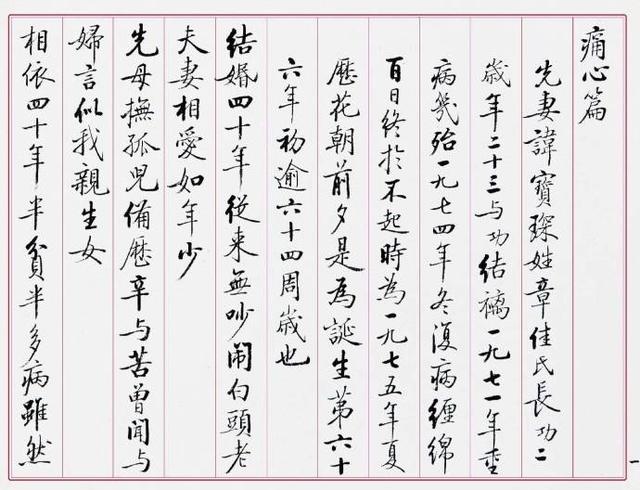 痛心篇
先妻諱寶琛姓章佳氏長功二
歲年二十三与功結褵一九七一年重
病幾殆一九七四年冬復病纏綿
百日終於不起時為一九七五年夏
曆花朝前夕是為誕生第六十
六年初逾六十四周歲也
結婚四十年從来無吵闹白頭老
夫妻相愛如年少
先母撫孤兒備歷辛与苦曾闻与
婦言似我親生女
相依四十年半貧半多病雖然
一